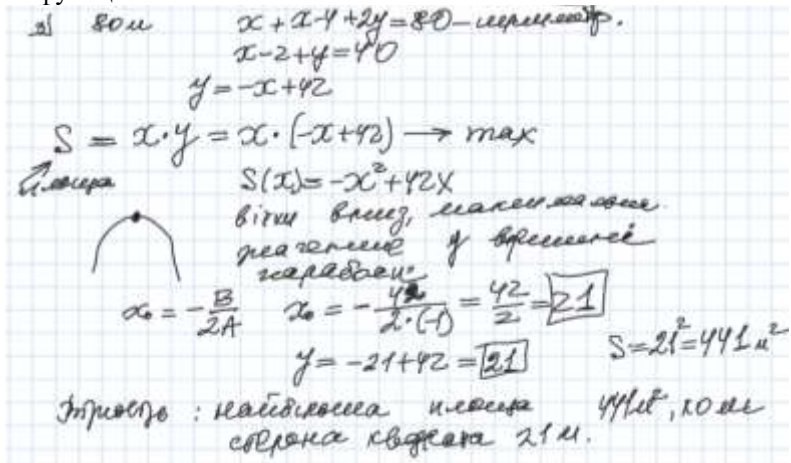 з) 80 м x + x - 4 + 2y = 80 - периметр.
x - 2 + y = 40
y = -x + 42
S = x · y = x · (-x + 42) → max
площа S(x) = -x² + 42x
вітки вниз, максимальне
значение у вершине
параболи
x₀ = -B/2A x₀ = -42/2·(-1) = 42/2 = 21
y = -21 + 42 = 21 S = 21² = 441 м²
: найбільша площа 441 м²,
сторона квадрата 21 м.